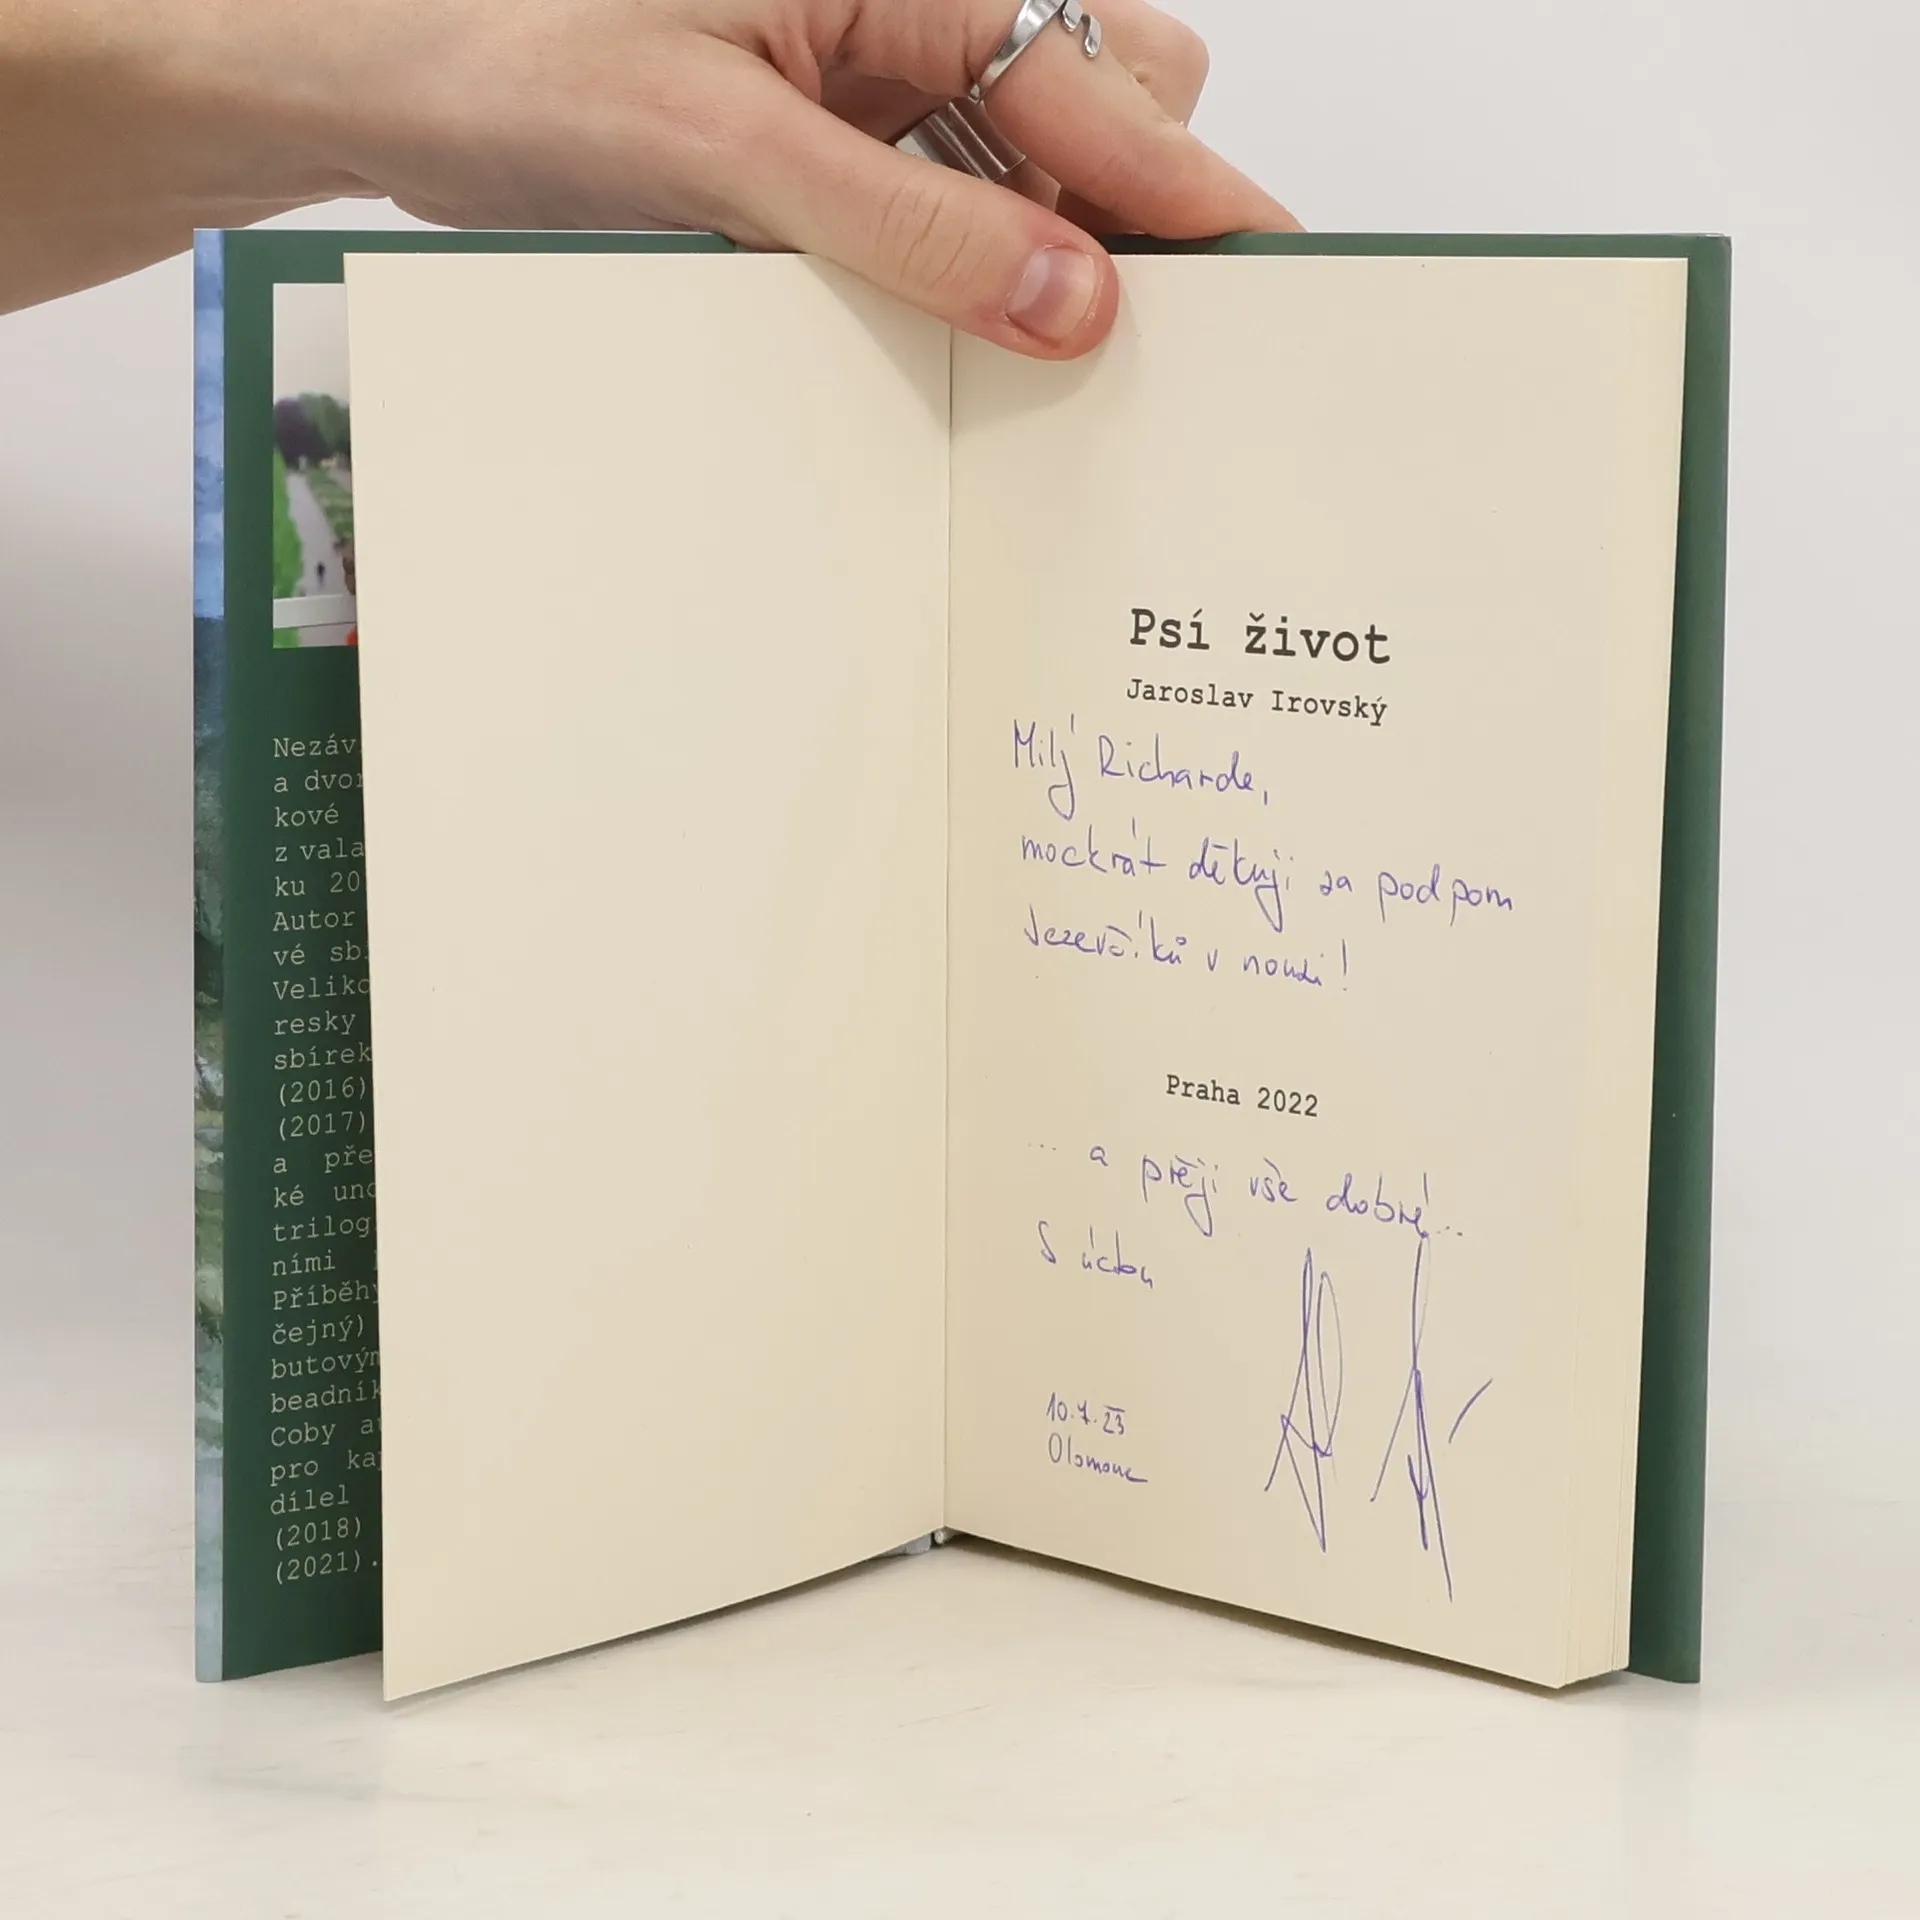 Nezáv
a dvor
kové
z vala
ku 20
Autor
vé sb
Veliko
resky
sbírek
(2016)
(2017)
a pře
ké und
trilog
ními
Příběhy
čejný)
butovým
beadník
Coby a
pro ka
dílel
(2018)
(2021).
Psí život
Jaroslav Irovský
Milý Richarde,
mockrát děkuji za podporu
Jezevčíků v nouzi!
Praha 2022
... a přeji vše dobré...
S úctou
10.7.23
Olomouc